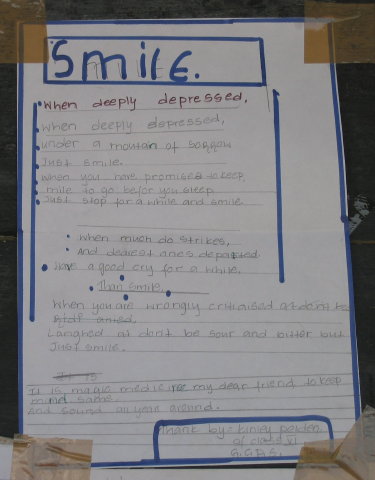 Smile.
When deeply depressed,
When deeply depressed,
under a moutan of sorrow
Just smile.
When you have promises to keep,
mile to go befor you sleep
Just stop for a while and smile.
When much do strikes,
And dearest ones departed
Have a good cry for a while.
Than smile.
When you are wrongly critiaised
Laughed at don't be sour and bitter but
Just smile.
It is
It is magic medicine my dear friend to keep
mind same.
And sound all year around.
Thank by = Kinley
of class VI